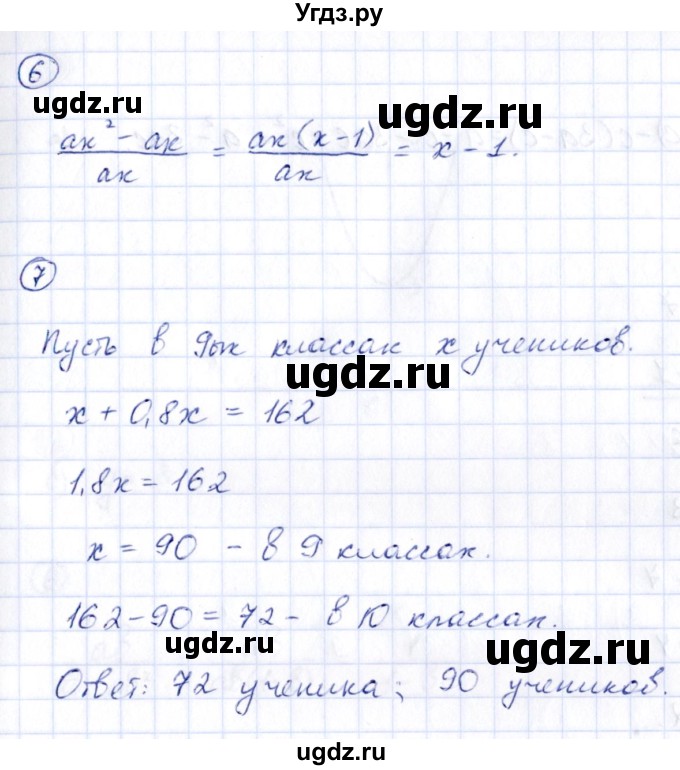 Угдз.ру
6
ugdz.ru ugdz.ru
(ax² - ax)/ax = ax(x-1)/ax = x - 1.
7
Пусть в 9ых классах x учеников.
ugdz.ru
x + 0,8x = 162
1,8x = 162
x = 90 - в 9 классах.
162 - 90 = 72 - в 10 классах.
ugdz.ru ugdz.ru
Ответ: 72 ученика; 90 учеников.
ugdz.ru